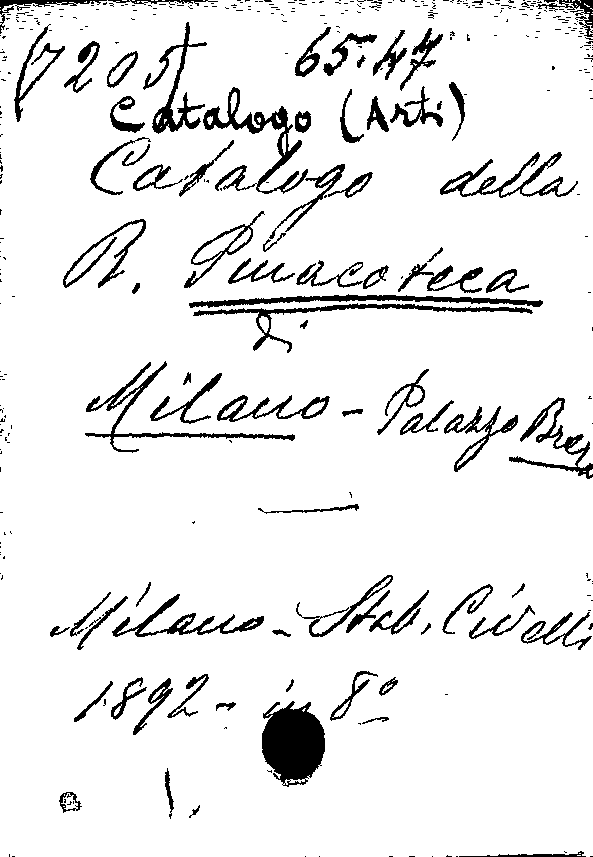 (7205) 65.47
Catalogo (Arti)
Catalogo della
R. Pinacoteca
di
Milano - Palazzo Brera
Milano - Stab. Civelli
1892 - in 8º
1.